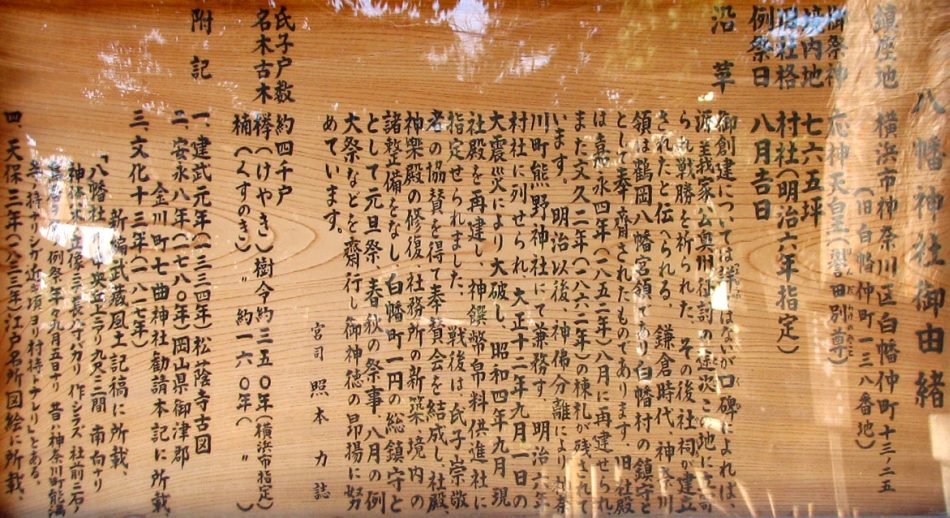 八幡神社御由緒
鎮座地 横浜市神奈川区白幡仲町十三ノ二五
(旧白幡仲町一三八番地)
御祭神 応神天皇(誉田別尊)
境内地 七六五坪
旧社格 村社(明治六年指定)
例祭日 八月吉日
沿革 御創建については詳ではないが口碑によれば、
源義家公奥州征討の途次この地に立寄
られ戦勝を祈られた その後社祠が建立
されたと伝へられる、鎌倉時代 神奈川
領は鶴岡八幡宮領であり白幡村の鎮守と
として奉齋されたものであります 旧社殿
は嘉永四年(一八五二年)八月に再建せられ
また文久二年(一八六二年)の棟札が残されて
います。明治以後、神佛分離により
川町熊野神社にて兼務す 明治六年
村社に列せられ 大正十二年九月一日の
大震災により大破し、昭和四年九月現
社殿を再建し、神饌幣帛料供進社に
指定せられました、戦後は、氏子崇敬
者の協賛を得て奉賛会を結成し、社殿
神樂殿の修復 社務所の新築 境内の
諸整備をなし 白幡町一円の総鎮守と
として元旦祭、春秋の祭事 八月の例
大祭などを齋行し御神徳の昂揚に努
めています。
宮司 照本 力 誌
氏子戸数 約四千戸
名木古木 欅(けやき)樹令約三五〇年(横浜市指定)
楠(くすのき) 〃 約一六〇年( 〃 )
附記 一、建武元年(一三三四年)松蔭寺古図
二、安永八年(一七八〇年)岡山県御津郡
金川町七曲神社勧請本記に所載、
三、文化十三年(一八一七年)
新編武蔵風土記稿に所載、
「八幡社 村ノ中央ニアリ九尺ニ三間 南向ナリ
神体木ノ立像ニテ長八寸カリ 作シラズ 社前ニ石ノ
例祭年々九月五日ナリ 昔ハ神奈川町能満
寺ノ持ナリシガ近キ頃ヨリ村持トナレリ」とある、
四、天保三年(一八三三年)江戸名所図絵に所載、